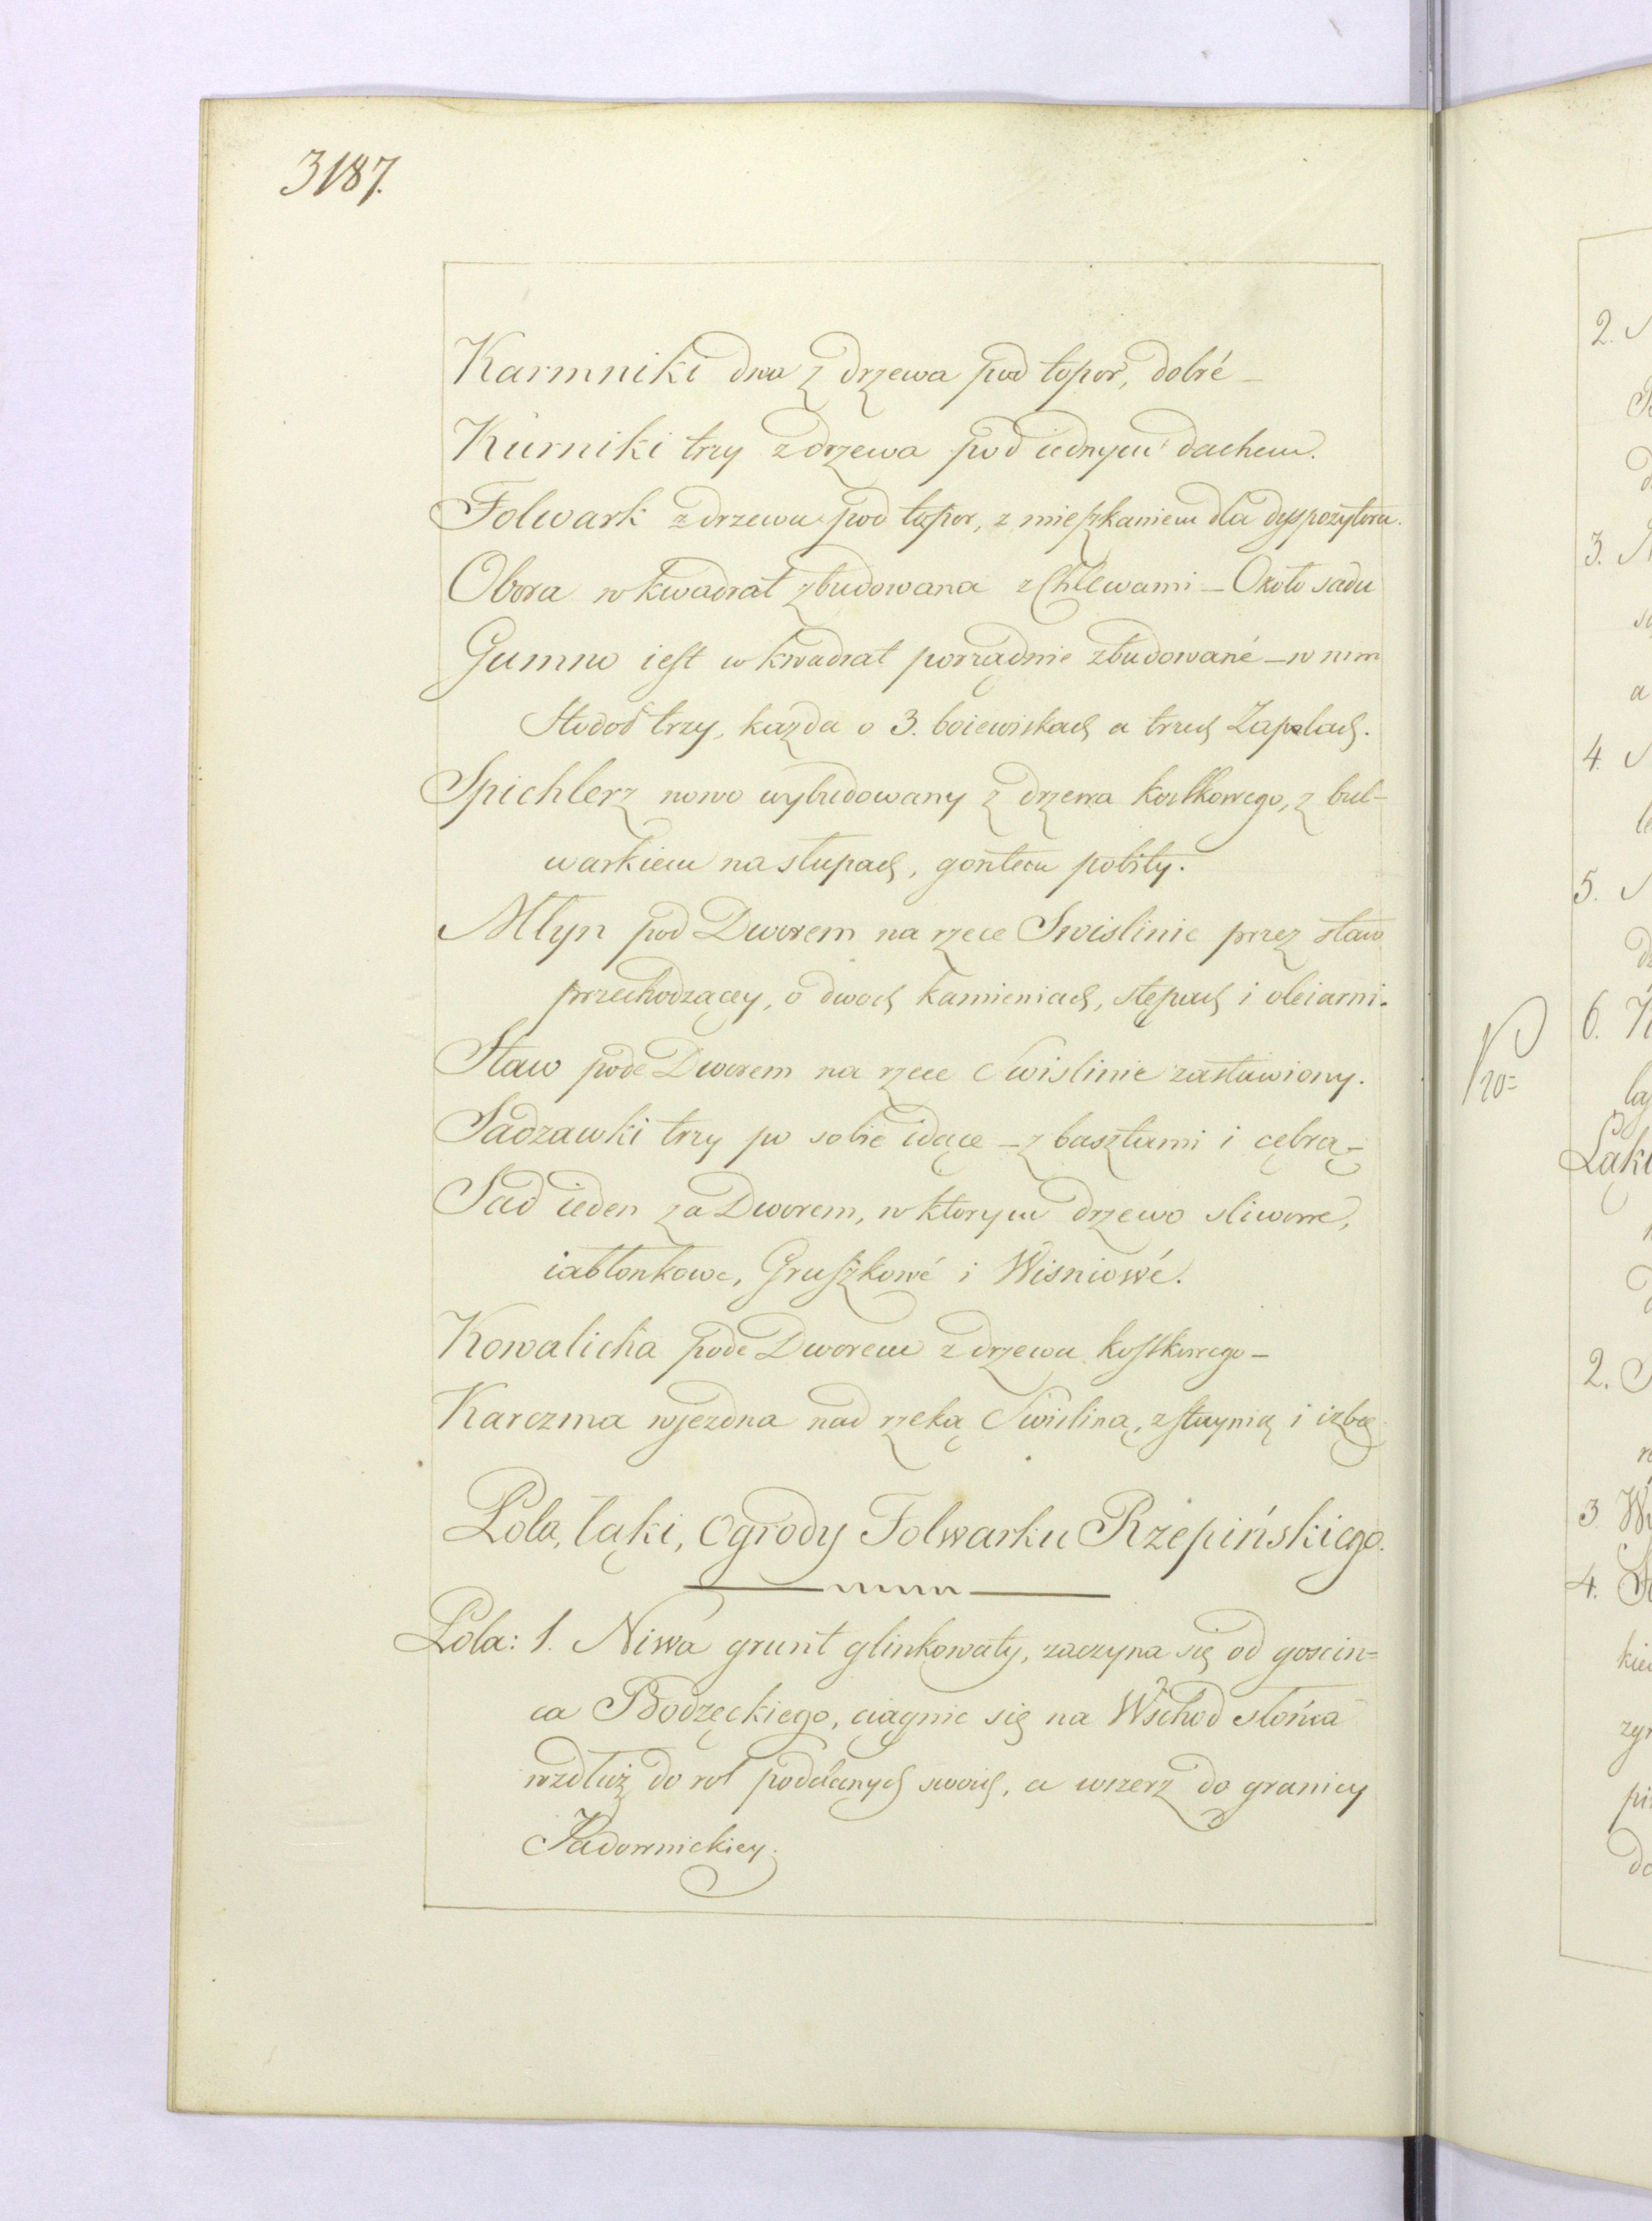 3187.
Karmniki dwa z drzewa pod topor, dobré –
Kurniki trzy z drzewa pod iednym dachem.
Folwark z drzewa pod topor, z mieszkaniem dla dyspozytora.
Obora w kwadrat zbudowana z Chlewami – Około sadu
Gumno iest w kwadrat porządnie zbudowané – w nim
Stodoł trzy, kazda o 3. boiewiskach a trzech Zapolach.
Spichlerz nowo wybudowany z drzewa kostkowego, z bul-
warkiem na słupach, gontem pobity.
Młyn pod Dworem na rzece Swislinie przez staw
przechodzącey, o dwoch kamieniach, stępach i oleiarni.
Staw pode Dworem na rzece Swislinie zastawiony.
Sadzawki trzy po sobie idące – z basztami i cębrą –
Sad ieden za Dworem, w ktorym drzewo sliwowe,
iabłonkowe, Gruszkowé i Wisniowé.
Kowalicha pode Dworem z drzewa kostkowego –
Karczma wjezdna nad rzeką Swisliną, z staynią i izbą
Pola, łąki, Ogrody Folwarku Rzepińskiego.
Pola: 1. Niwa grunt glinkowaty, zaczyna się od goscin=
ca Bodzęckiego, ciągnie się na Wschod słońca
wzdłuż do rol poddanych swoich, a wszerz do granicy
Jadownickiey.
2.
3.
a
4.
5.
6.
20=
2.
3.
4.